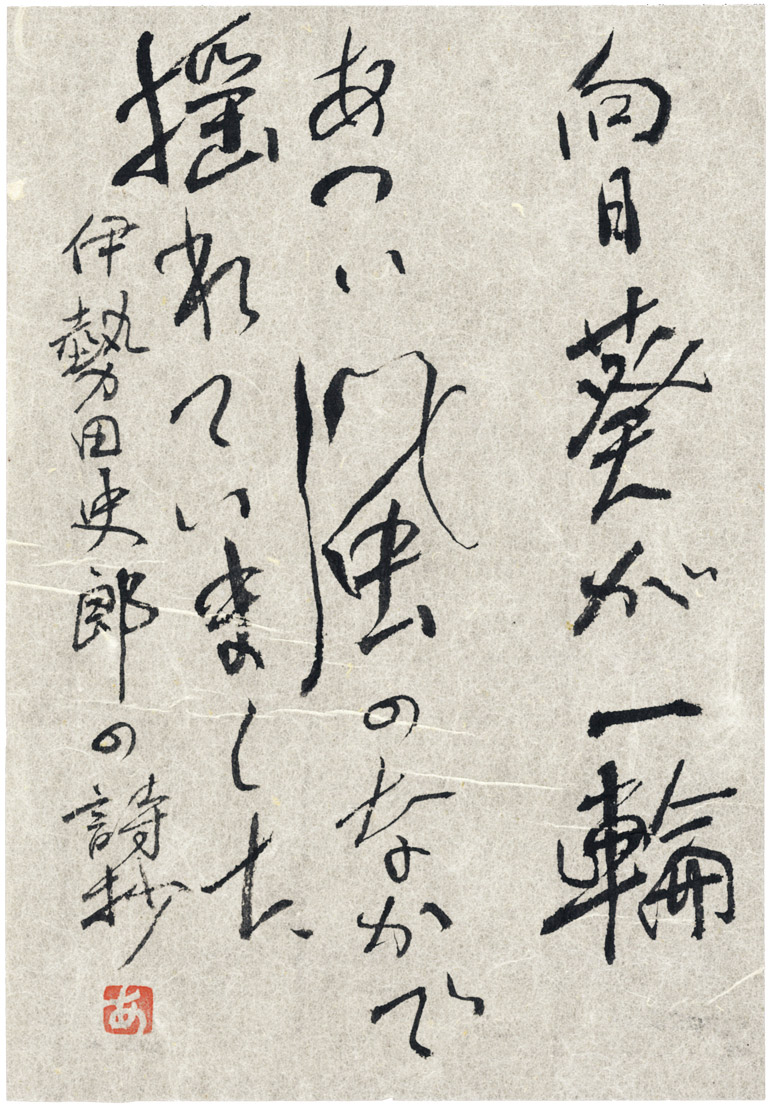 向日葵が一輪
あつい風のなかで
揺れていました
伊勢田史郎の詩抄
あ